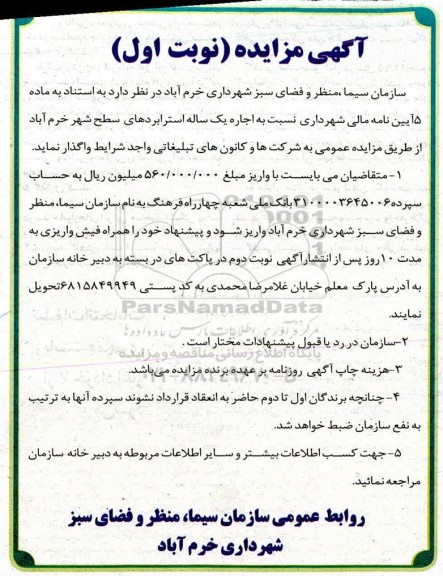 آگهی مزایده (نوبت اول)
سازمان سیما،منظر و فضای سبز شهرداری خرم آباد در نظر دارد به استناد به ماده
۵آیین نامه مالی شهرداری نسبت به اجاره یک ساله استرابردهای سطح شهر خرم آباد
از طریق مزایده عمومی به شرکت ها و کانون های تبلیغاتی واجد شرایط واگذار نماید.
۱- متقاضیان می بایست با واریز مبلغ ۵۶۰/۰۰۰/۰۰۰ میلیون ریال به حساب
سپرده۳۱۰۰۰۰۳۶۴۵۰۰۶بانک ملی شعبه چهارراه فرهنگ به نام سازمان سیما،منظر
و فضای سبز شهرداری خرم آباد واریز شود و پیشنهاد خود را همراه فیش واریزی به
مدت ۱۰روز پس از انتشارآگهی نوبت دوم در پاکت های در بسته به دبیر خانه سازمان
به آدرس پارک معلم خیابان غلامرضا محمدی به کد پستی ۶۸۱۵۸۴۹۹۴۹تحویل
نمایند.
ParsNamadData
۲-سازمان در رد یا قبول پیشنهادات مختار است .
پایگاه اطلاع رسانی مناقصه و مزایده
۳-هزینه چاپ آگهی روزنامه بر عهده برنده مزایده می‌باشد.
۴- چنانچه برندگان اول تا دوم حاضر به انعقاد قرارداد نشوند سپرده آنها به ترتیب
به نفع سازمان ضبط خواهد شد.
۵- جهت کسب اطلاعات بیشتر و سایر اطلاعات مربوطه به دبیر خانه سازمان
مراجعه نمائید.
روابط عمومی سازمان سیما، منظر و فضای سبز
شهرداری خرم آباد